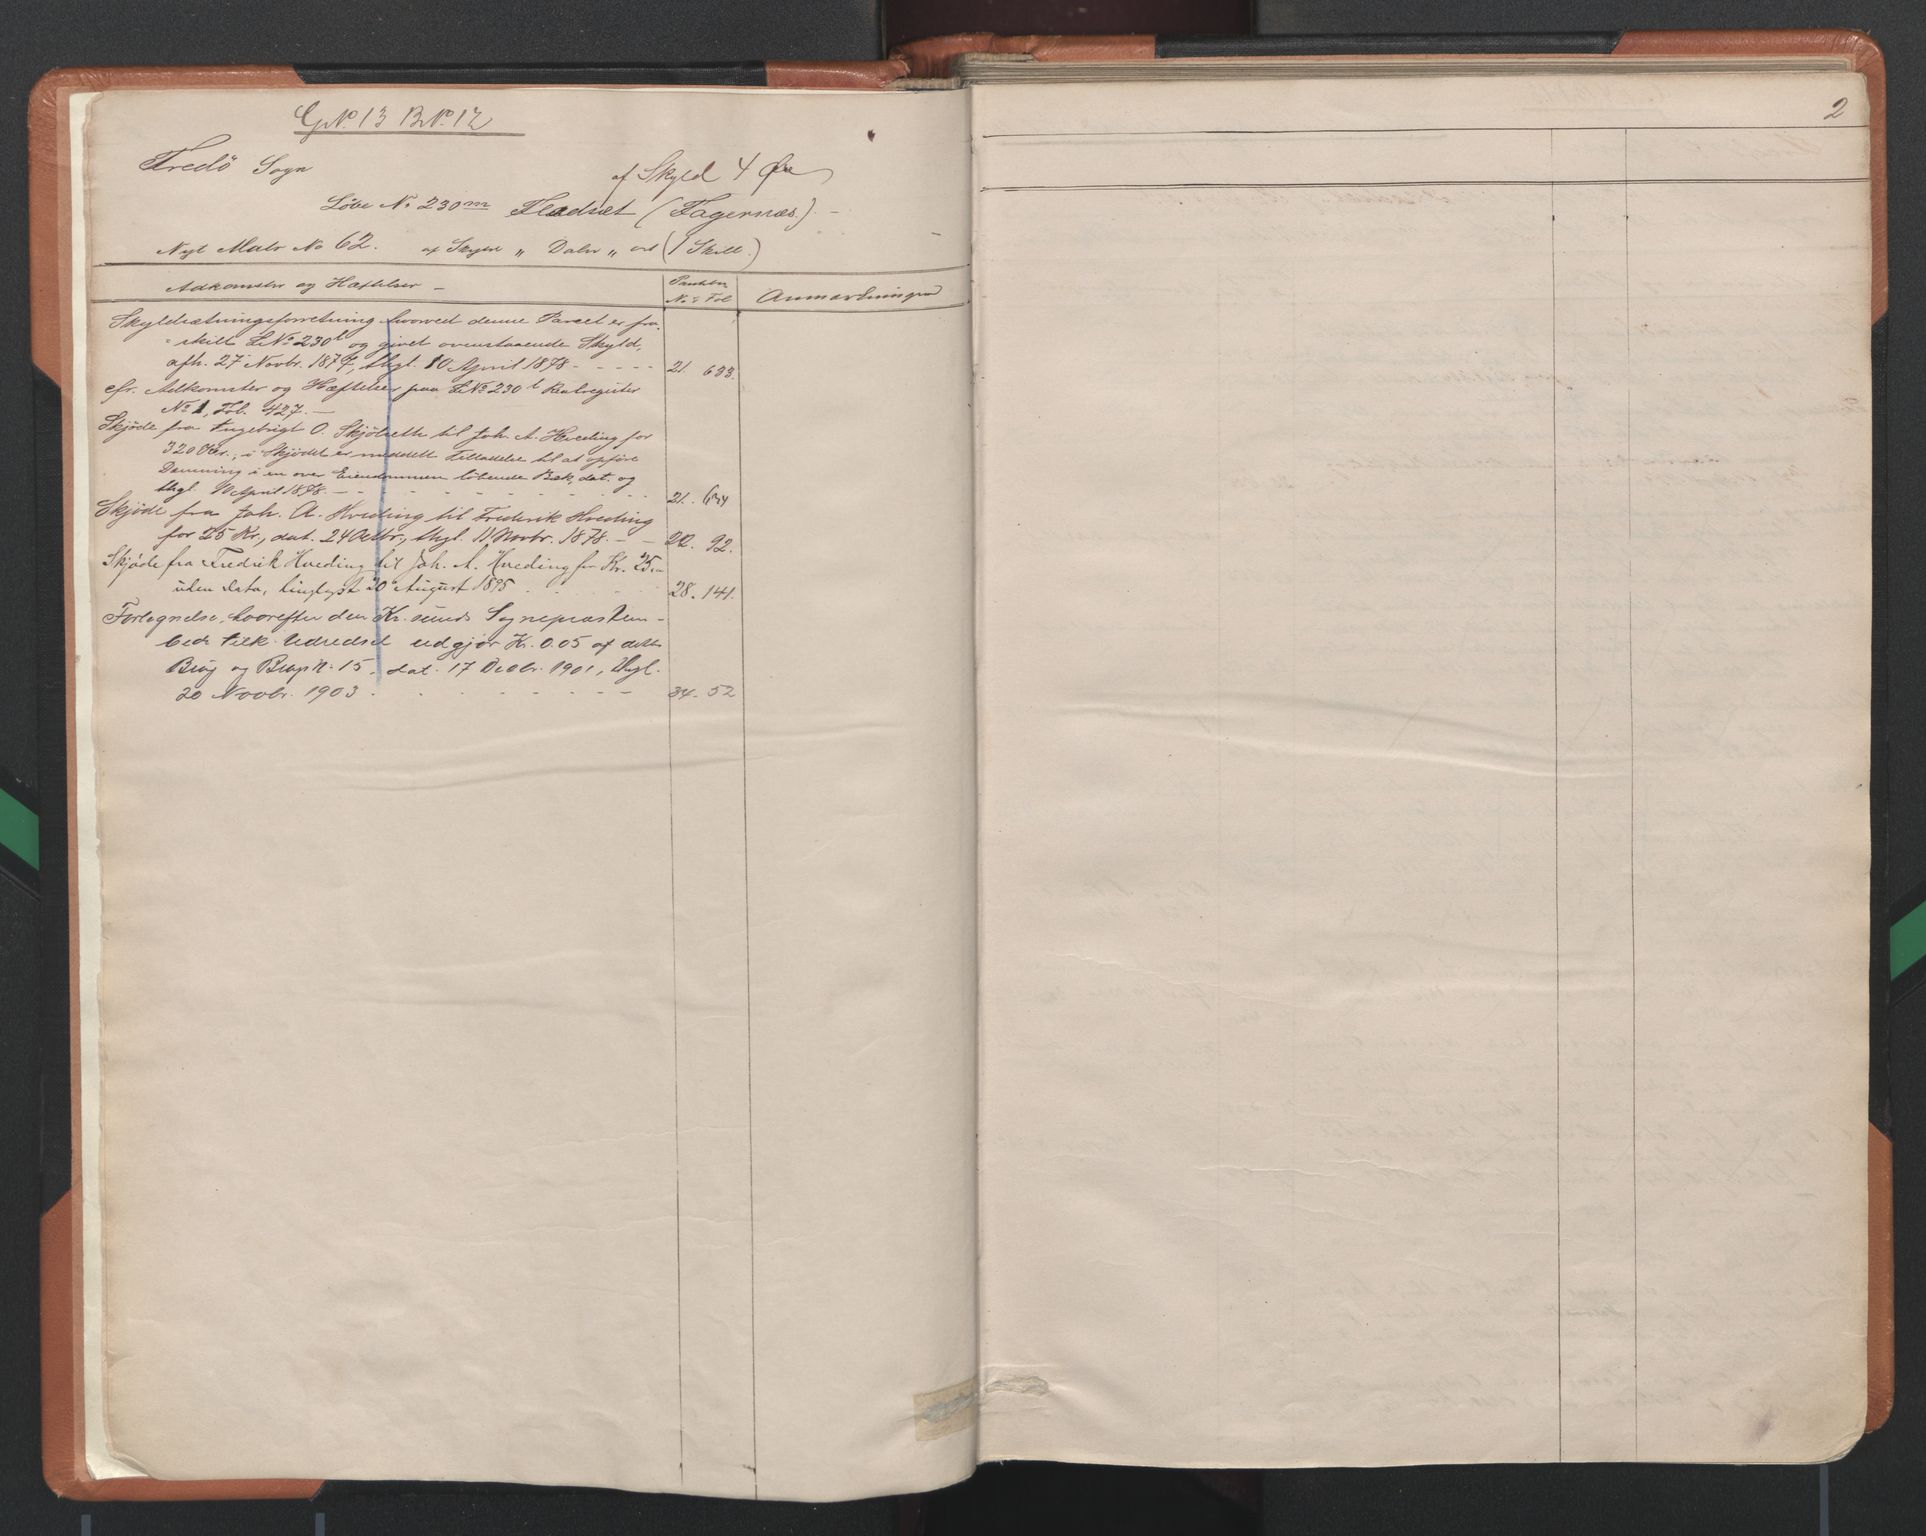 GNo. 13 BNo. 12
Fredö Sogn af Skyld 4 Øre
Löbe No 230m Fladsæt (Fagernæs).
Nyt Matr No 62. af Skyld „ Daler „ ort (1 Skill.)
Adkomster og Hæftelser – Pantebog Anmærkninger
No & Fol
Skyldsætningsforretning, hvorved denne Parcel er fra-
skilt LNo 230l og givet ovenstaaende Skyld,
afh. 27 Novbr. 1877, thgl. 10 April 1878 - - - - 21. 633.
cfr. Adkomster og Hæftelser paa LNo 230 l Realregister
No 1, Fol. 427. –
Skjöde fra Ingebrigt O. Skjölseth til Joh. A. Hveding for
320 Kr., i Skjödet er meddelt Tilladelse til at opföre
Dæmning i en over Eiendommen löbende Bæk, dat. og
thgl. 10 April 1878. - - - - - - - 21. 634
Skjöde fra Joh. A. Hveding til Frederik Hveding
for 25 Kr., dat. 24 Octbr., thgl. 11 Novbr. 1878. - - 22. 92.
Skjöde fra Fredrik Hveding til Joh. A. Hveding for Kr. 25
uden Data, tinglyst 20 August 1895 . . . . . 28. 141.
Forlegnelse, hvorefter den Kr. sunds Sognepræstem-
bede tilk. Udredsel udgjör Kr. 0.05 af dette
Brug og Brugs N. 15, dat. 17 Decbr. 1901, thgl.
20 Novbr. 1903 . . . . . - - - 34. 52
2